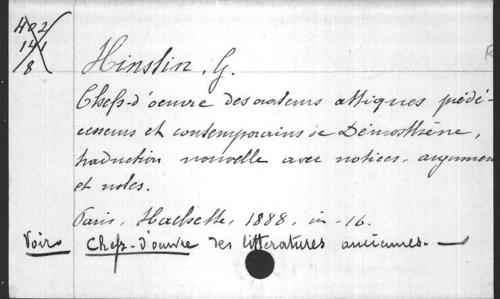 402
141
8
Hinstin, G.
Chefs-d'oeuvre des orateurs attiques prédé-
cesseurs et contemporains de Démosthène,
traduction nouvelle avec notices, argumen
et notes.
Paris, Hachette, 1888, in-16.
Voir Chefs-d'œuvre des littératures anciennes. —